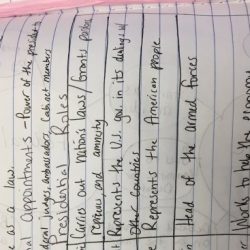 e as a law.
al Appointments - Power of the president
deral judges, ambassadors, Cabinet members
Presidential Roles
Carries out nation's laws/Grants pardons
reprieves and amnesty
Represents the U.S. gov. in its dealings w/
other countries
Represents the American people
Head of the armed forces
Works to the economy